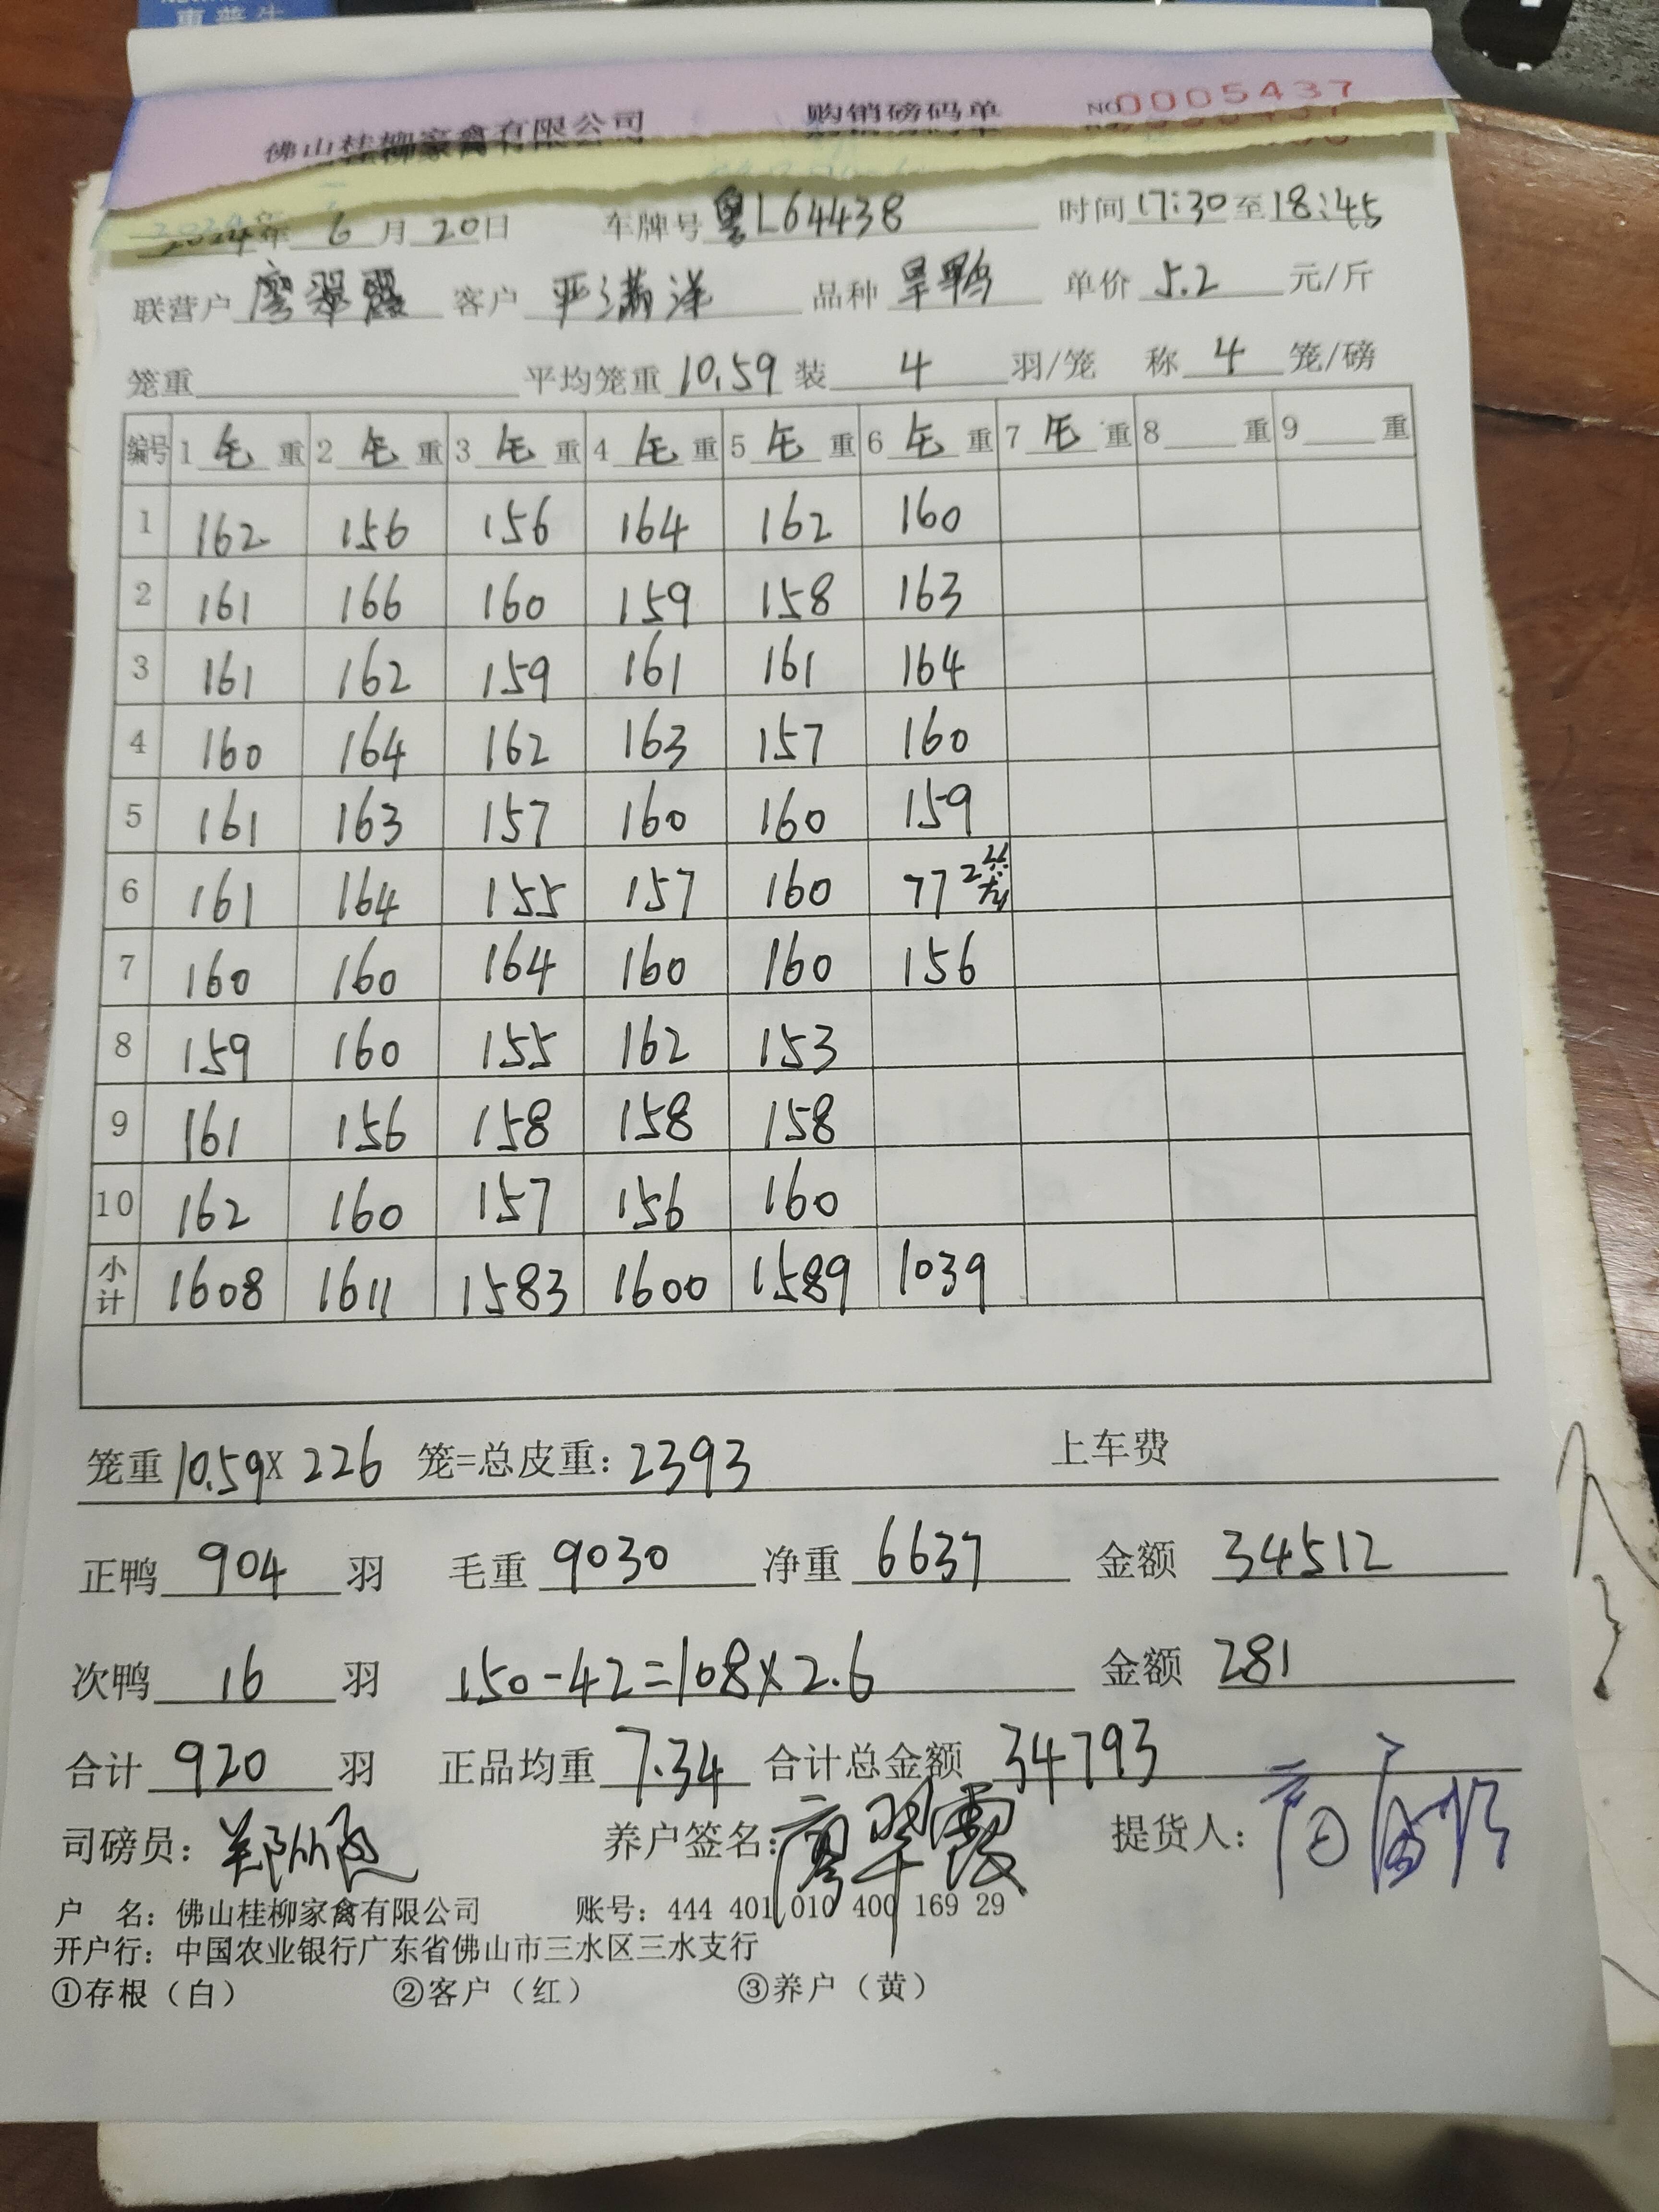 惠普生
佛山桂柳家禽有限公司 购销磅码单 NO 0005437
2024年 6 月 20日 车牌号 粤L64438 时间 17:30 至 18:45
联营户 廖翠霞 客户 严满洋 品种 旱鸭 单价 5.2 元/斤
笼重 平均笼重 10.59 装 4 羽/笼 称 4 笼/磅
编号 1 毛 重 2 毛 重 3 毛 重 4 毛 重 5 毛 重 6 毛 重 7 毛 重 8 重 9 重
1 162 156 156 164 162 160
2 161 166 160 159 158 163
3 161 162 159 161 161 164
4 160 164 162 163 157 160
5 161 163 157 160 160 159
6 161 164 155 157 160 77 2笼
7 160 160 164 160 160 156
8 159 160 155 162 153
9 161 156 158 158 158
10 162 160 157 156 160
小计 1608 1611 1583 1600 1589 1039
笼重 10.59 X 226 笼=总皮重: 2393 上车费
正鸭 904 羽 毛重 9030 净重 6637 金额 34512
次鸭 16 羽 150-42=108×2.6 金额 281
合计 920 羽 正品均重 7.34 合计总金额 34793
司磅员: 养户签名: 廖翠霞 提货人:
户 名: 佛山桂柳家禽有限公司 账号: 444 401 010 400 169 29
开户行: 中国农业银行广东省佛山市三水区三水支行
①存根（白） ②客户（红） ③养户（黄）